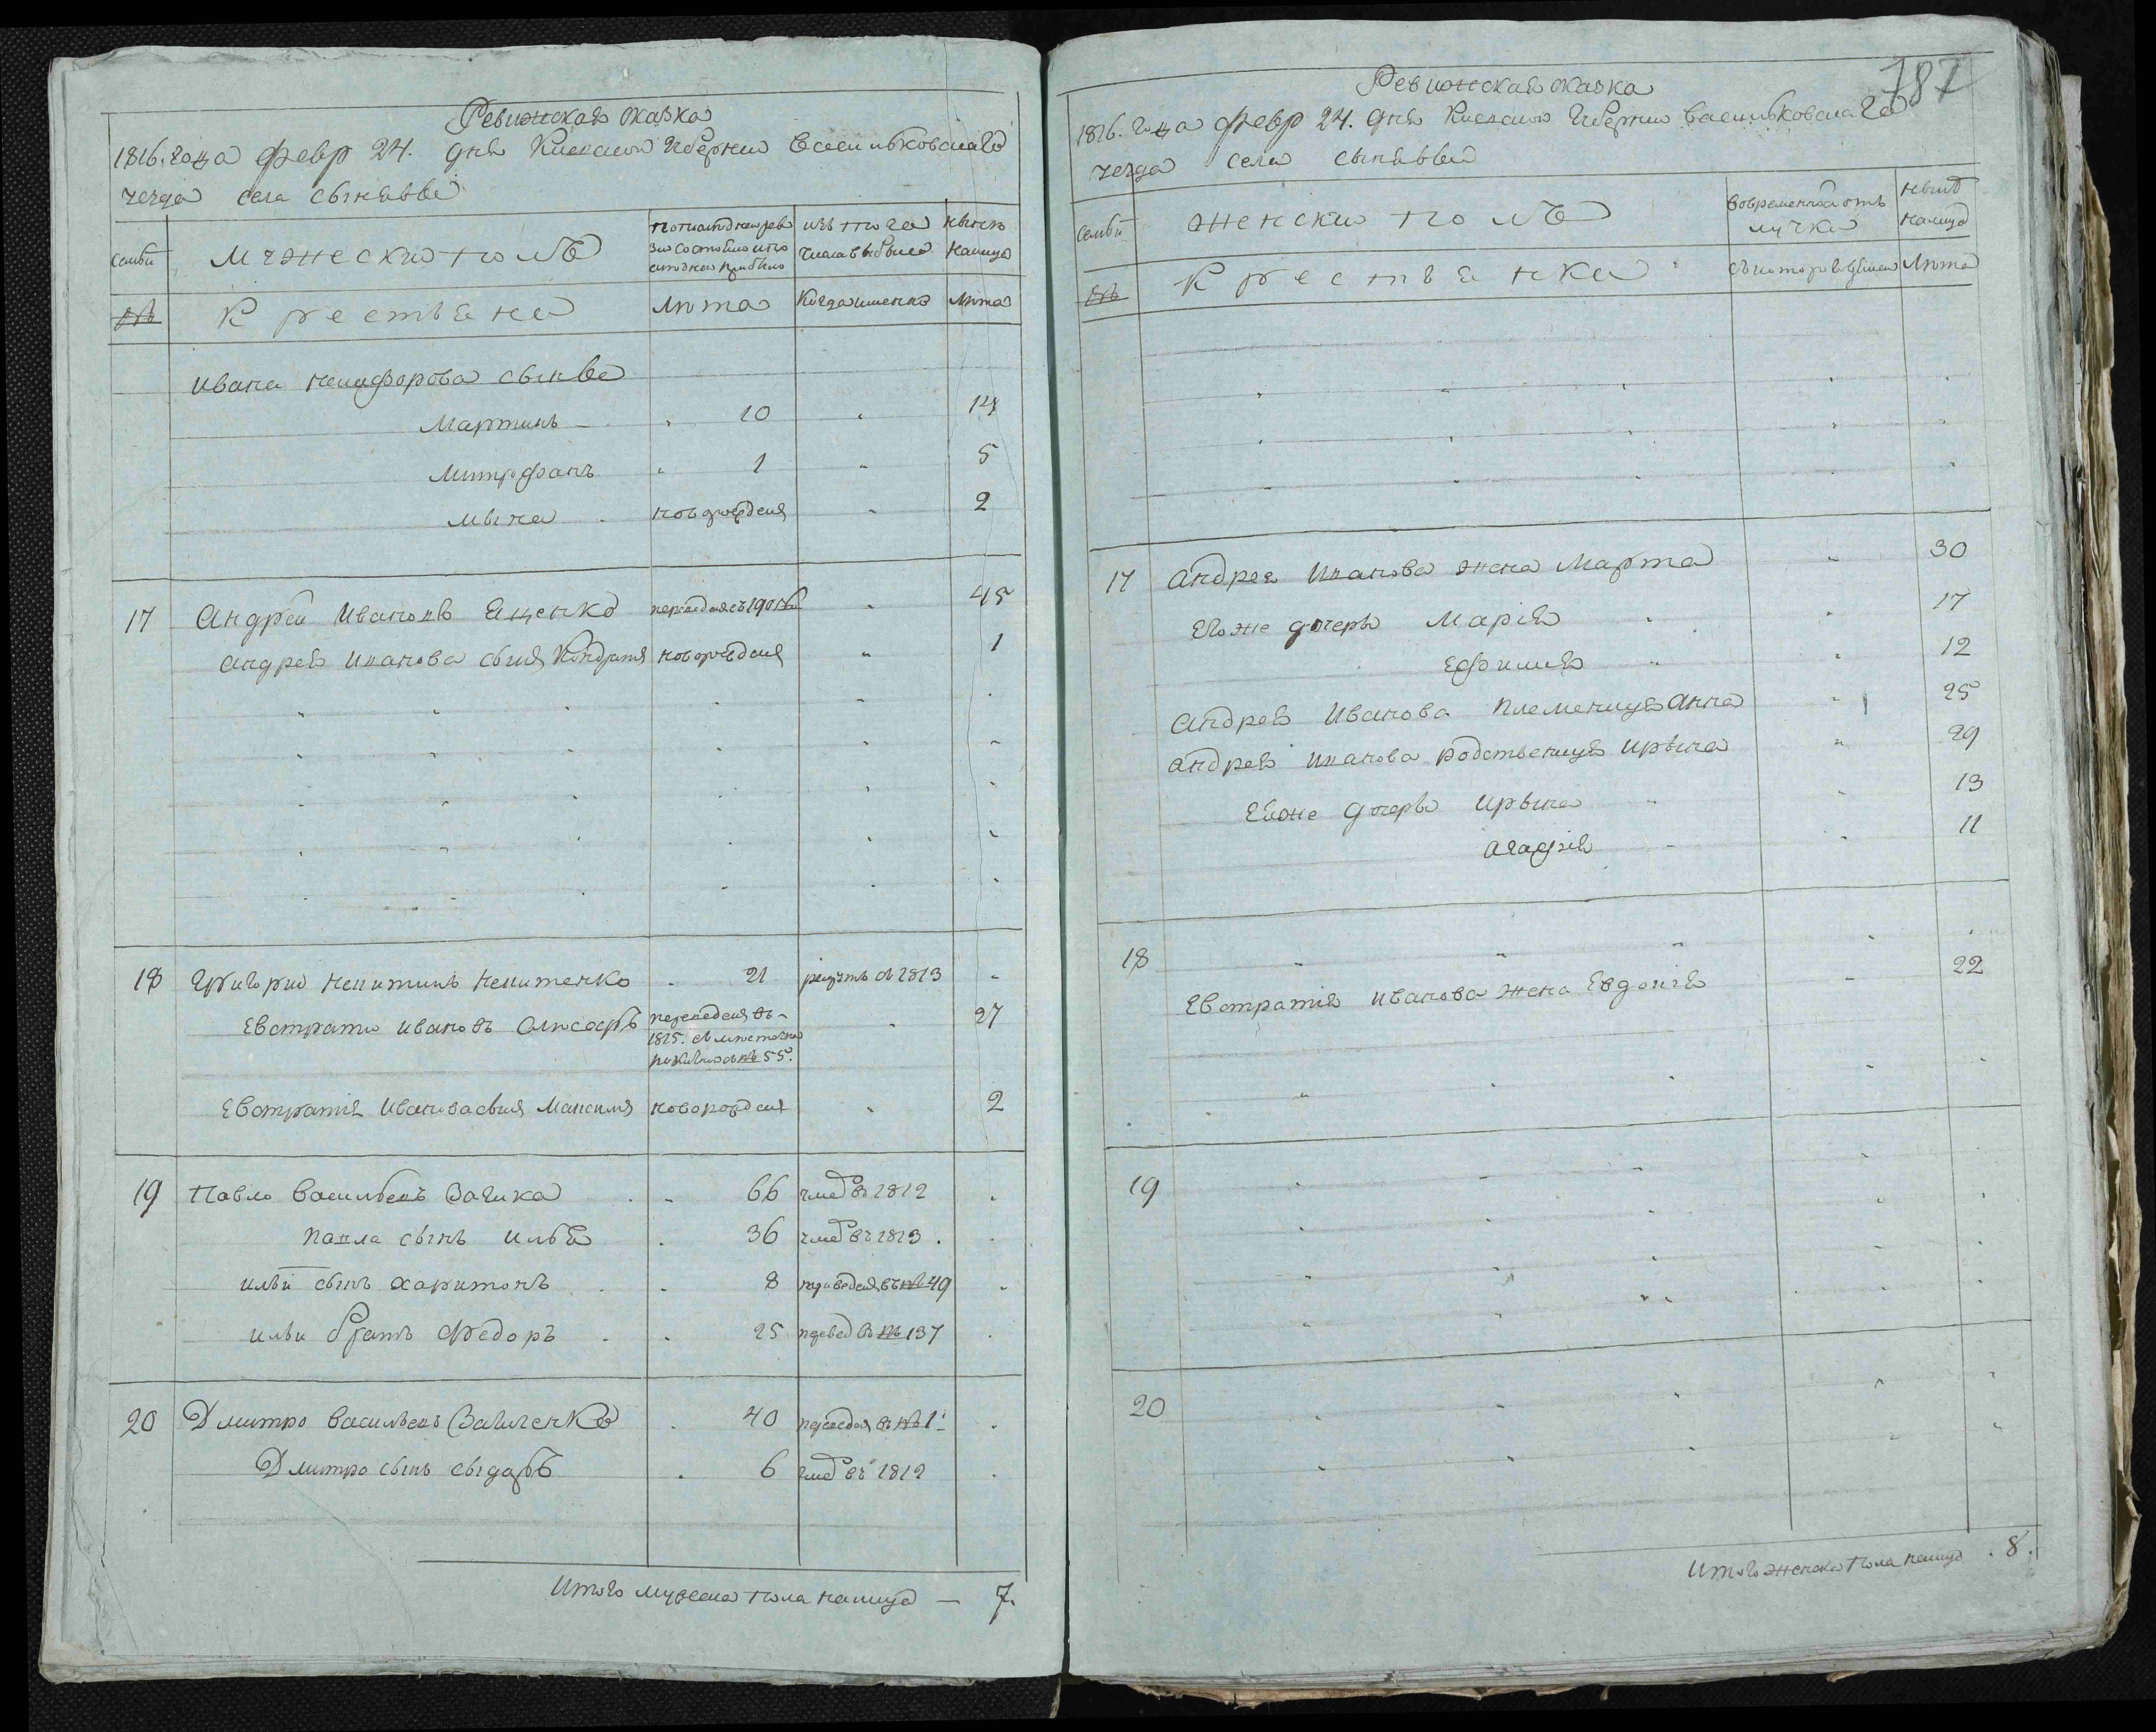 Ревижская сказка
1816. года февр 24. дня Киевской Губернии Васильковскаго
уезда села Сынявы
Семьи
Мужеский полъ
По последней реви
зии состояло и по
слѣ оной прибыло
изъ того
числа выбыло
Нынѣ
налицо
№
Крестьяне
Лѣта
Когда именно
Лѣта
Ивана Никифорова сынве
Мартинъ 10 14
Митрофанъ 1 5
Мына новорожденъ 2
17 Андрей Ивановъ Ященко 45
Андрея Иванова сынъ Кондратъ новорожденъ 1
18 Григорий Никитинъ Никитенко 21 рекрутъ в 1813
Евстратий Ивановъ Слюсарь переведенъ въ 27
1815. съ местечка
№ 55.
Евстратия Иванова сынъ Максимъ новорожденъ 2
19 Павло Васильевъ Заика 66 умер в 1812
Павла сынъ Илья 36 умер въ 1813.
Ильи сынъ Харитонъ 8 переведенъ въ № 49
Ильи братъ Федоръ 25 перевед в № 137
20 Дмитро Васильевъ 40 переведенъ в № 1
Дмитро сынъ Сыдоръ 6 умер въ 1812
Итого мужеска пола налицо — 7.
187
Ревижская сказка
1816. года февр 24. дня Киевской Губернии Васильковскаго
уезда села Сынявы
Семьи
Женский полъ
Вовременной отъ
лучки
Нынѣ
налицо
№
Крестьянки
Съ котораго времени
Лѣта
17 Андрея Иванова жена Марта 30
Его же дочеръ Марія 17
Ефимия 12
Андрея Иванова племеница Анна 25
Андрея Иванова родственица Ирына 29
Ея же дочеръ Ирына 13
Агафія 11
18
Евстратия Иванова жена Евдокія 22
19
20
Итого женска пола налицо . 8.